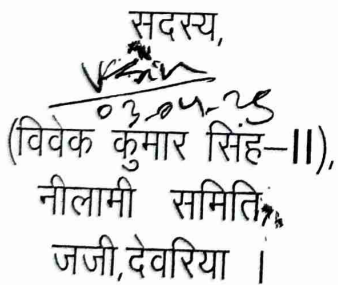 सदस्य,
03-04-25
(विवेक कुमार सिंह–II),
नीलामी समिति,
जजी,देवरिया ।